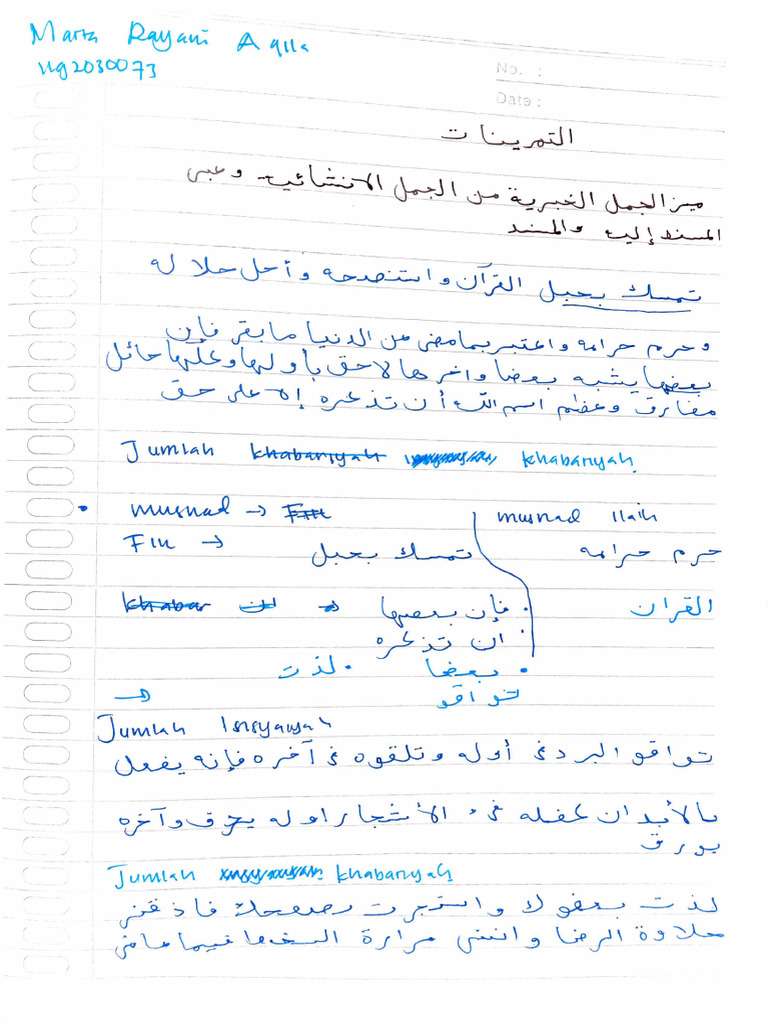 Marta Rayani Aqila
1192030073
No. :
Date :
التمرينات
ميز الجمل الخبرية من الجمل الانشائية وعين
المسند إليه والمسند
تمسك بحبل القرآن واستنصحه وأحل حلاله
وحرم حرامه واعتبر بما مضى من الدنيا ما بقر فإن
بعضها يشبه بعضا واخرها لاحق بأولها وعلها حائل
مفارق وعظم اسم الله أن تذكره إلا على حق
Jumlah khabariyah khabariyah
musnad → Fiil musnad ilaih
Fiil → تمسك بحبل حرم حرامه
khabar ان → فإن بعضها القران
ان تذكره
بعضا لذت
→ تواقو
Jumlah Insyaiyah
تواقو البرد في أوله وتلقوه في آخره فإنه يفعل
بالأبدان كفعله في الأشجار اوله يحرق وآخره
يورق
Jumlah khabariyah
لذت بعفوك واستجرت بصفحك فاذقني
حلاوة الرضا وانسنى مرارة السخط فيما مضى